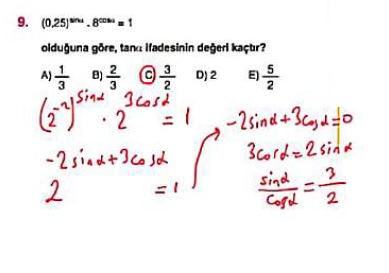 9. (0,25)^sinα . 8^cosα = 1
olduğuna göre, tanα ifadesinin değeri kaçtır?
A) 1/3 B) 2/3 C) 3/2 D) 2 E) 5/2
(2^-2)^sinα . 2^3cosα = 1
2^-2sinα+3cosα = 1
-2sinα+3cosα=0
3cosα=2sinα
sinα/cosα = 3/2